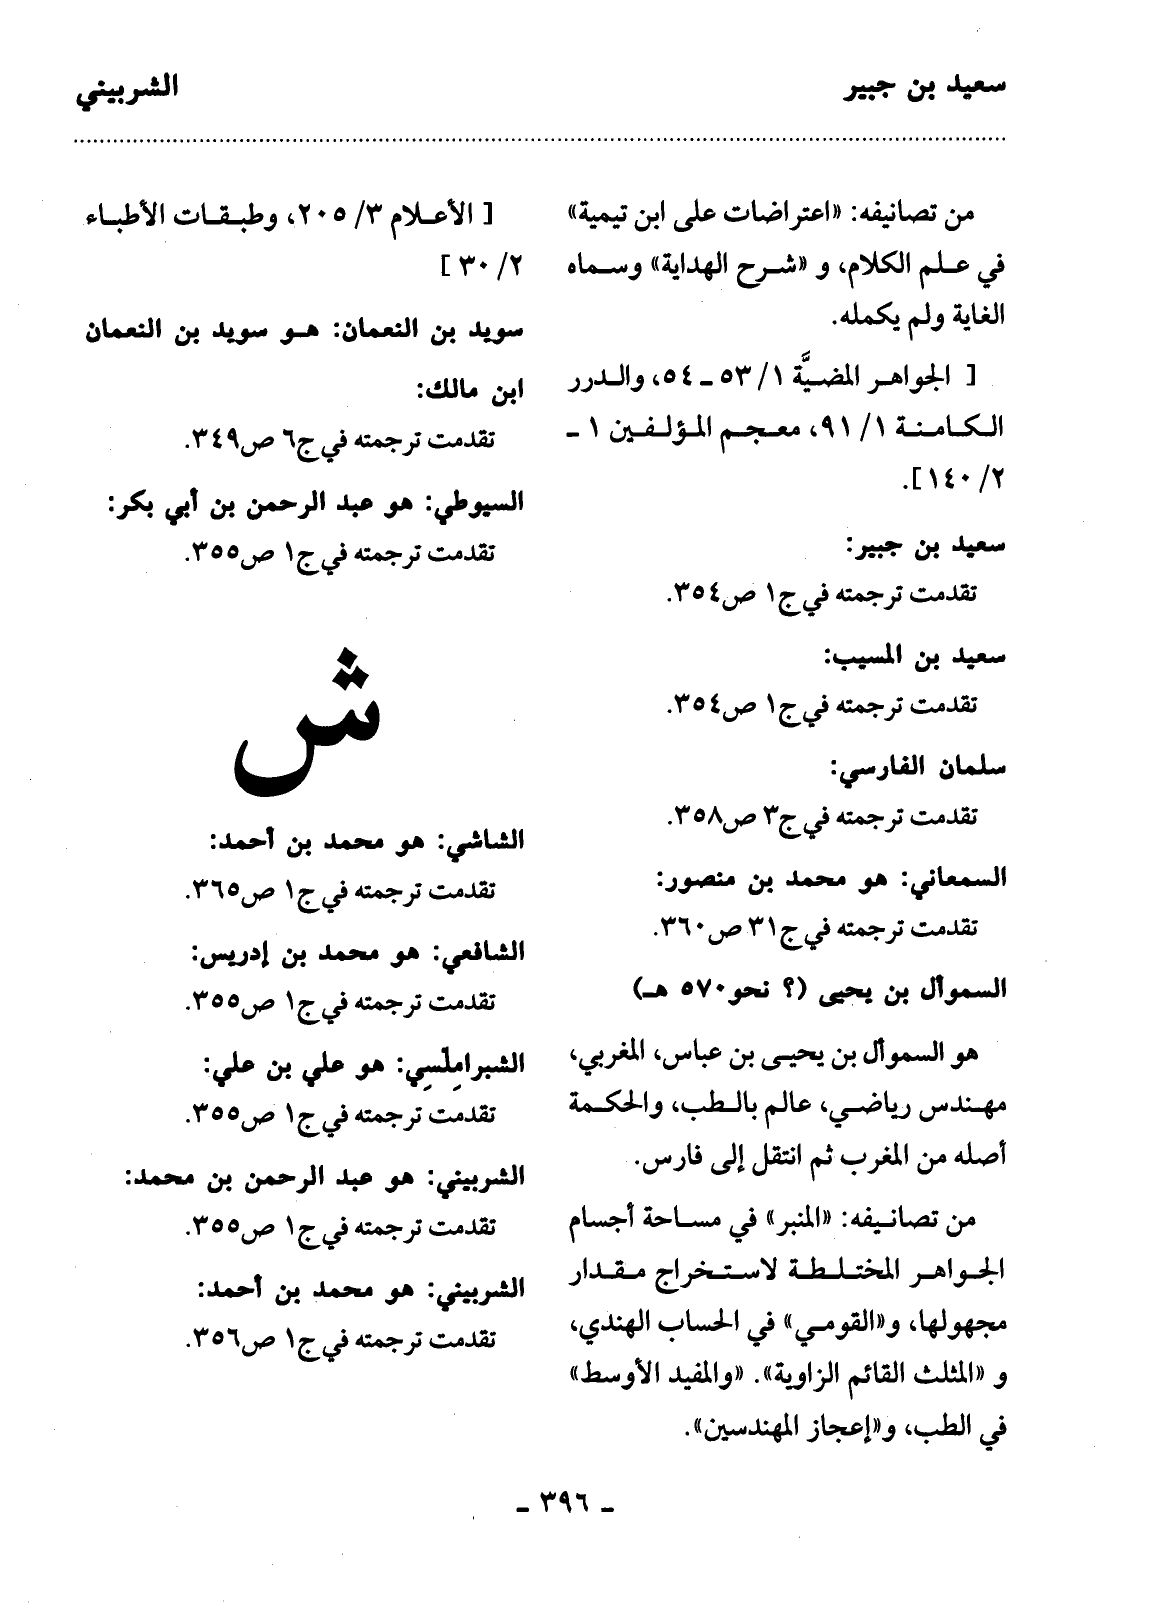 سعيد بن جبير
الشربيني
من تصانيفه: «اعتراضات على ابن تيمية»
في علم الكلام، و «شرح الهداية» وسماه
الغاية ولم يكمله.
[ الجواهر المضيَّة ١/ ٥٣ ـ ٥٤، والدرر
الكامنة ١/ ٩١، معجم المؤلفين ١ ـ
٢/ ١٤٠].
سعيد بن جبير:
تقدمت ترجمته في ج١ ص٣٥٤.
سعيد بن المسيب:
تقدمت ترجمته في ج١ ص٣٥٤.
سلمان الفارسي:
تقدمت ترجمته في ج٣ ص٣٥٨.
السمعاني: هو محمد بن منصور:
تقدمت ترجمته في ج٣١ ص٣٦٠.
السموأل بن يحيى (؟ نحو٥٧٠ هـ)
هو السموأل بن يحيى بن عباس، المغربي،
مهندس رياضي، عالم بالطب، والحكمة
أصله من المغرب ثم انتقل إلى فارس.
من تصانيفه: «المنبر» في مساحة أجسام
الجواهر المختلطة لاستخراج مقدار
مجهولها، و«القومي» في الحساب الهندي،
و «المثلث القائم الزاوية». «والمفيد الأوسط»
في الطب، و«إعجاز المهندسين».
[ الأعلام ٣/ ٢٠٥، وطبقات الأطباء
٢/ ٣٠ ]
سويد بن النعمان: هو سويد بن النعمان
ابن مالك:
تقدمت ترجمته في ج٦ ص٣٤٩.
السيوطي: هو عبد الرحمن بن أبي بكر:
تقدمت ترجمته في ج١ ص٣٥٥.
ش
الشاشي: هو محمد بن أحمد:
تقدمت ترجمته في ج١ ص٣٦٥.
الشافعي: هو محمد بن إدريس:
تقدمت ترجمته في ج١ ص٣٥٥.
الشبرامِلّسِي: هو علي بن علي:
تقدمت ترجمته في ج١ ص٣٥٥.
الشربيني: هو عبد الرحمن بن محمد:
تقدمت ترجمته في ج١ ص٣٥٥.
الشربيني: هو محمد بن أحمد:
تقدمت ترجمته في ج١ ص٣٥٦.
ـ ٣٩٦ ـ